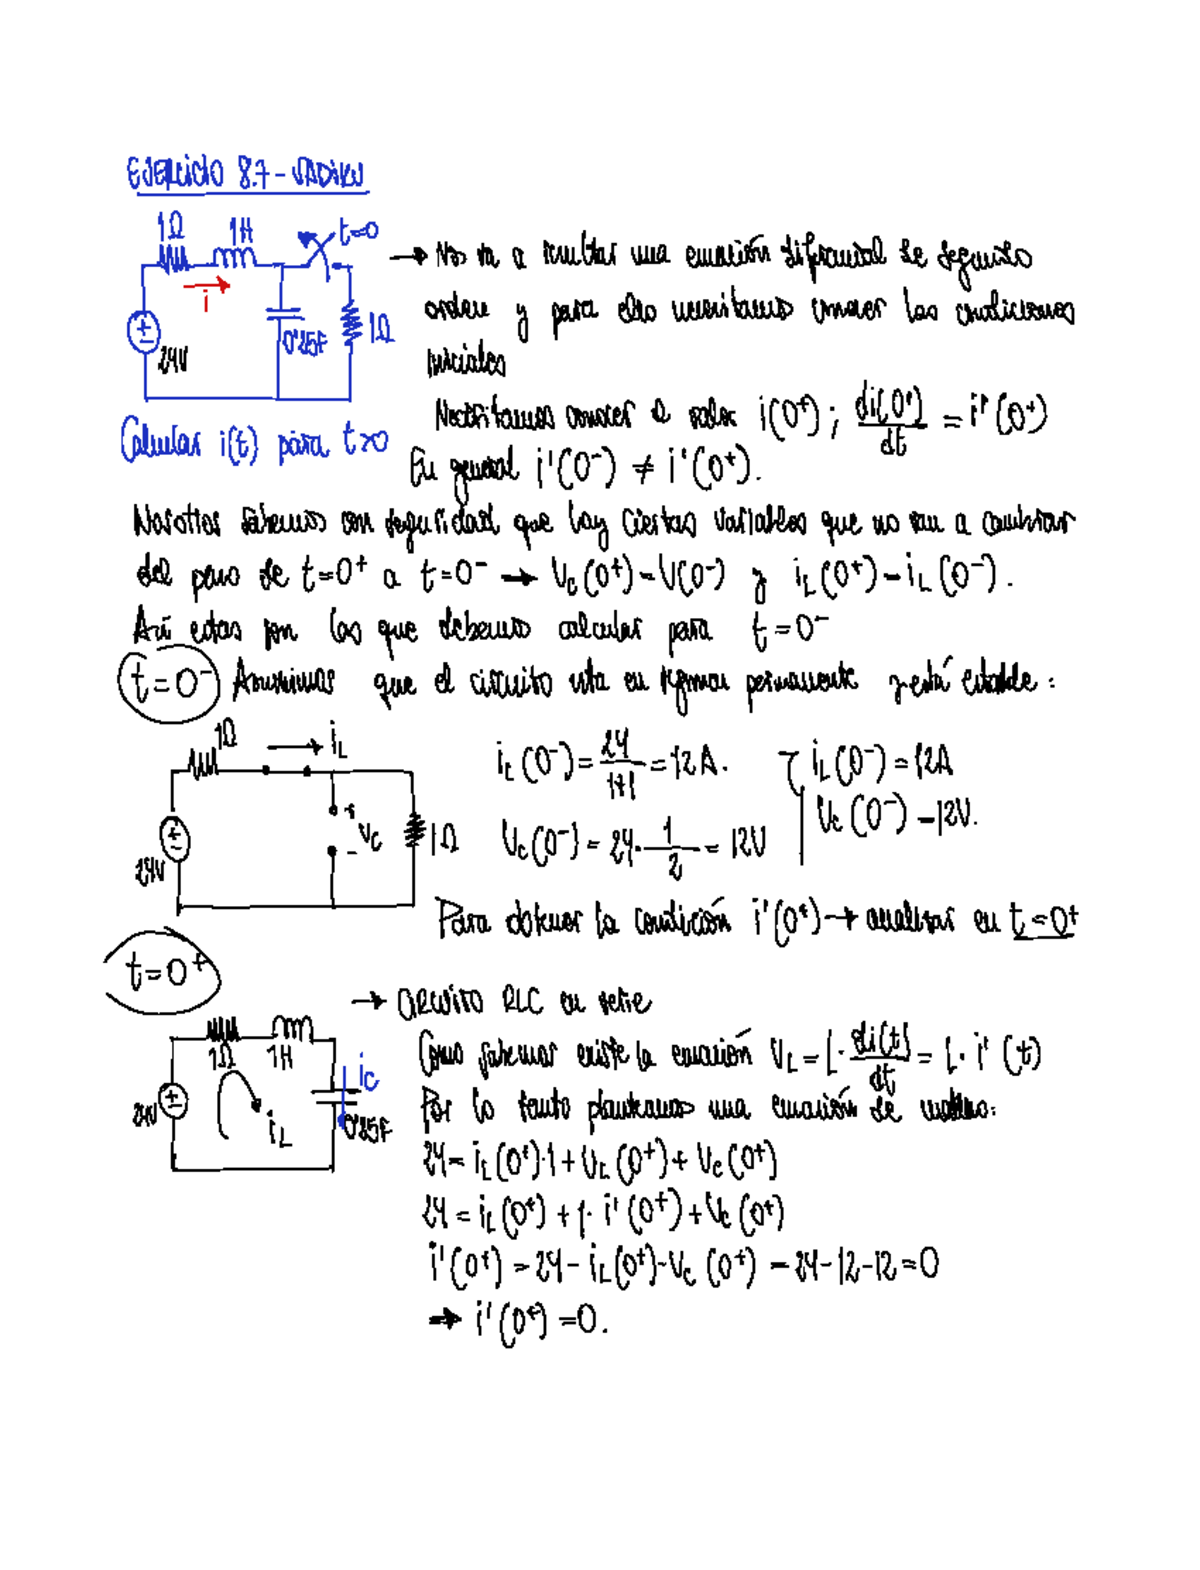 EJERCICIO 8.7 - SADIKU
1Ω 1H t=0
i
24V 0'25F 1Ω
Calcular i(t) para t>0
→ Nos va a resultar una ecuación diferencial de segundo
orden y para ello necesitamos conocer las condiciones
iniciales
Necesitamos conocer el valor i(0⁺) ; di(0⁺)/dt = i'(0⁺)
En general i'(0⁻) ≠ i'(0⁺).
Nosotros sabemos con seguridad que hay ciertas variables que no van a cambiar
del paso de t=0⁺ a t=0⁻ → Vc(0⁺)=V(0⁻) y iL(0⁺)=iL(0⁻).
Así estas son las que debemos calcular para t=0⁻
t=0⁻ Asumimos que el circuito esta en régimen permanente y está estable:
1Ω iL
24V Vc 1Ω
iL(0⁻)= 24/1+1 = 12A. iL(0⁻)=12A
Vc(0⁻)= 24· 1/2 = 12V Vc(0⁻)=12V.
Para obtener la condición i'(0⁺) → analizar en t=0⁺
t=0⁺
→ CIRCUITO RLC en serie
1Ω 1H ic
24V iL 0'25F
Como sabemos existe la ecuación VL = L· di(t)/dt = L· i'(t)
Por lo tanto planteamos una ecuación de malla:
24 = iL(0⁺)·1 + VL(0⁺) + Vc(0⁺)
24 = iL(0⁺) + 1· i'(0⁺) + Vc(0⁺)
i'(0⁺) = 24 - iL(0⁺) - Vc(0⁺) = 24-12-12=0
→ i'(0⁺) =0.